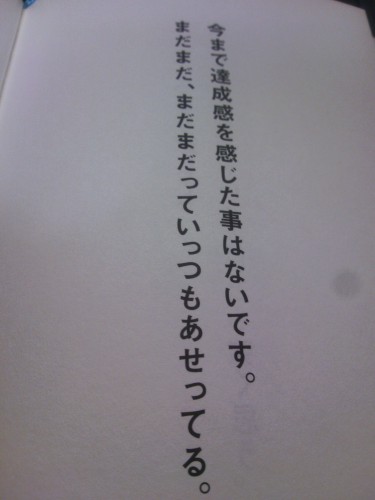 今まで達成感を感じた事はないです。
まだまだ、まだまだっていっつもあせってる。